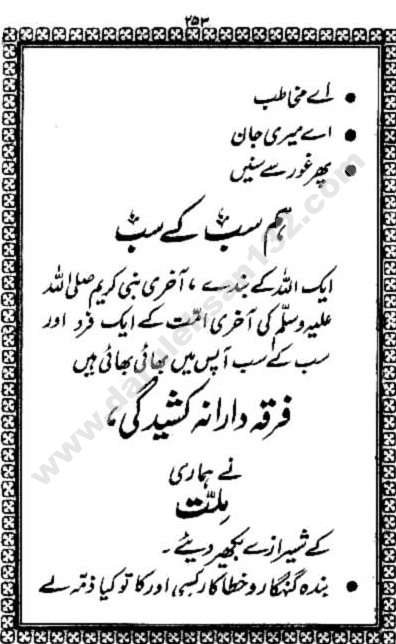 ۲۵۳
• اے مخاطب
• اے میری جان
• پھر غور سے سنیں
ہم سب کے سب
ایک اللہ کے بندے، آخری نبی کریم صلی اللہ
علیہ وسلم کی آخری امّت کے ایک فرد اور
سب کے سب آپس میں بھائی بھائی ہیں
فرقہ دارانہ کشیدگی،
نے ہماری
مِلّت
کے شیرازے بکھیر دیئے۔
• بندہ گنہگار و خطاکار کسی اور کا تو کیا ذمّہ لے
www.darulehsan132.com